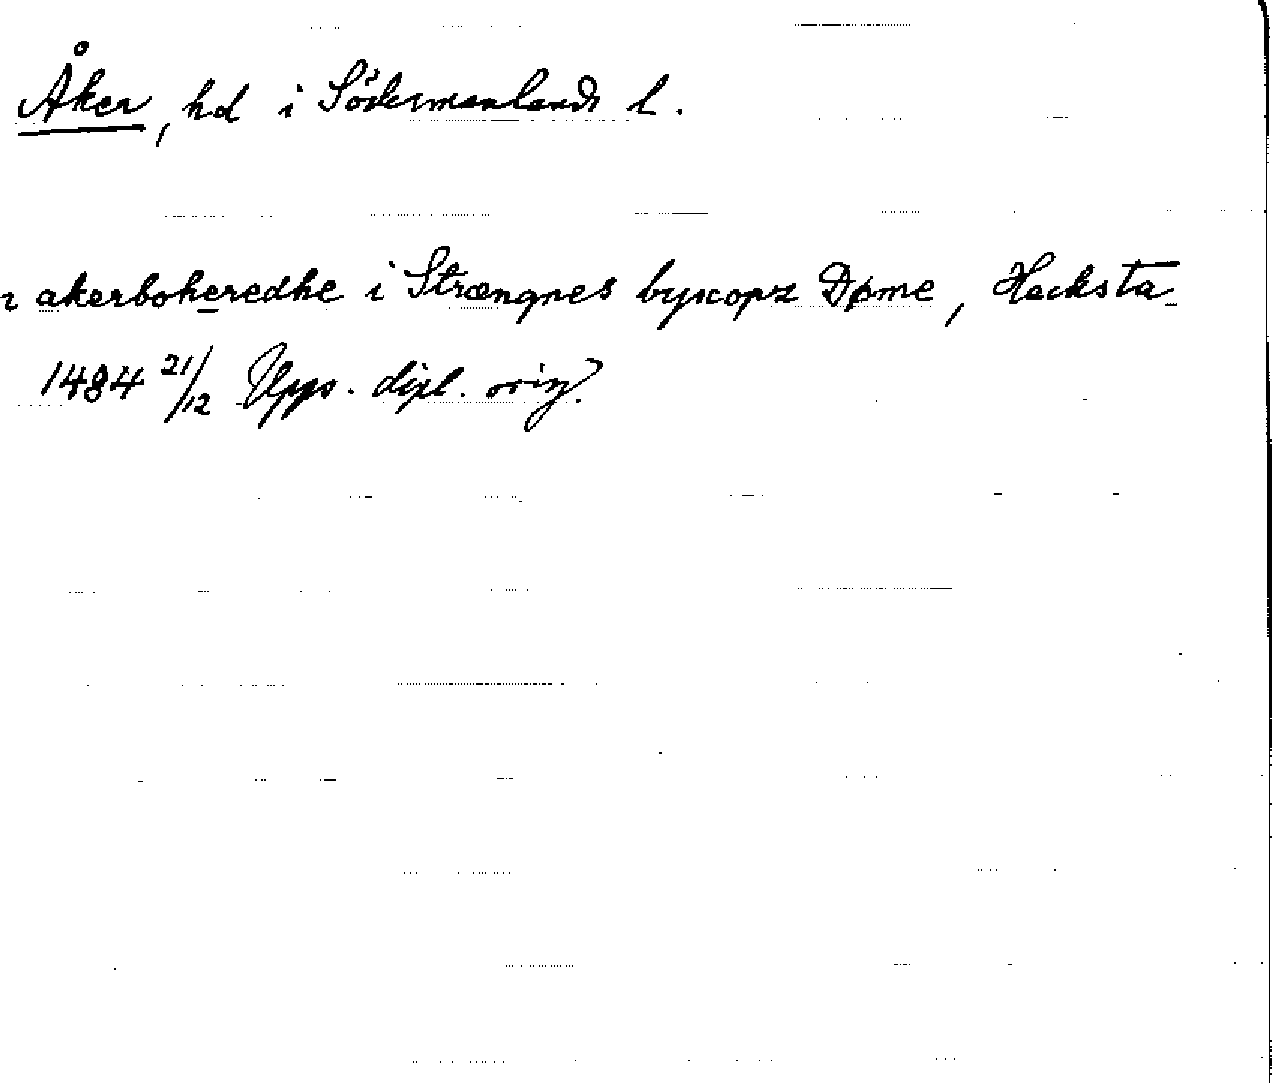 Åker, hd i Södermanlands l.
akerboheredhe i Strængnes byscopz Døme, Hacksta
1484 21/12 Upps. dipl. orig.